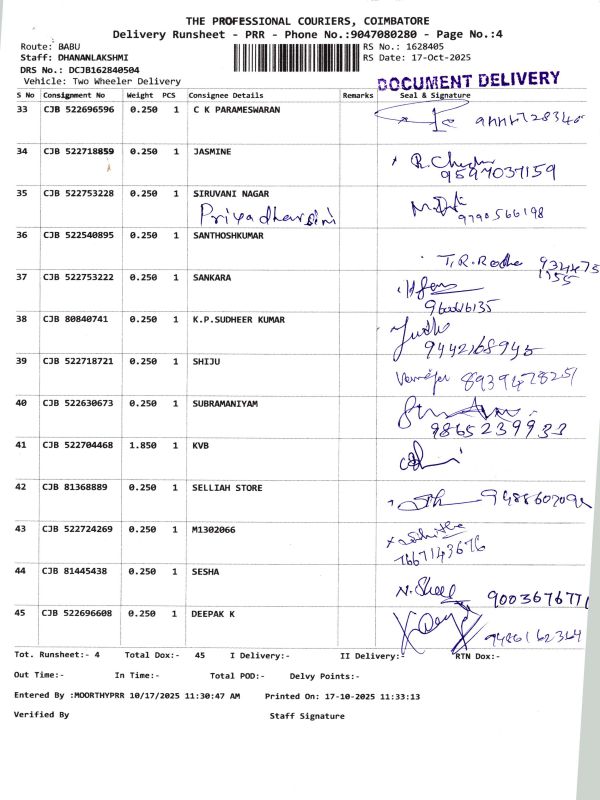 THE PROFESSIONAL COURIERS, COIMBATORE
Delivery Runsheet - PRR - Phone No.:9047080280 - Page No.:4
Route: BABU RS No.: 1628405
Staff: DHANANLAKSHMI RS Date: 17-Oct-2025
DRS No.: DCJB162840504
Vehicle: Two Wheeler Delivery
DOCUMENT DELIVERY
S No Consignment No Weight PCS Consignee Details Remarks Seal & Signature
33 CJB 522696596 0.250 1 C K PARAMESWARAN
34 CJB 522718859 0.250 1 JASMINE
9597037159
35 CJB 522753228 0.250 1 SIRUVANI NAGAR
Priyadharsini 9790566198
36 CJB 522540895 0.250 1 SANTHOSHKUMAR
T.R.Radha 934475
1755
37 CJB 522753222 0.250 1 SANKARA
38 CJB 80840741 0.250 1 K.P.SUDHEER KUMAR
9442168945
39 CJB 522718721 0.250 1 SHIJU
40 CJB 522630673 0.250 1 SUBRAMANIYAM
9865239933
41 CJB 522704468 1.850 1 KVB
42 CJB 81368889 0.250 1 SELLIAH STORE
43 CJB 522724269 0.250 1 M1302066
7667143676
44 CJB 81445438 0.250 1 SESHA
9003676771
45 CJB 522696608 0.250 1 DEEPAK K
9486162364
Tot. Runsheet:- 4 Total Dox:- 45 I Delivery:- II Delivery:- RTN Dox:-
Out Time:- In Time:- Total POD:- Delvy Points:-
Entered By :MOORTHYPRR 10/17/2025 11:30:47 AM Printed On: 17-10-2025 11:33:13
Verified By Staff Signature